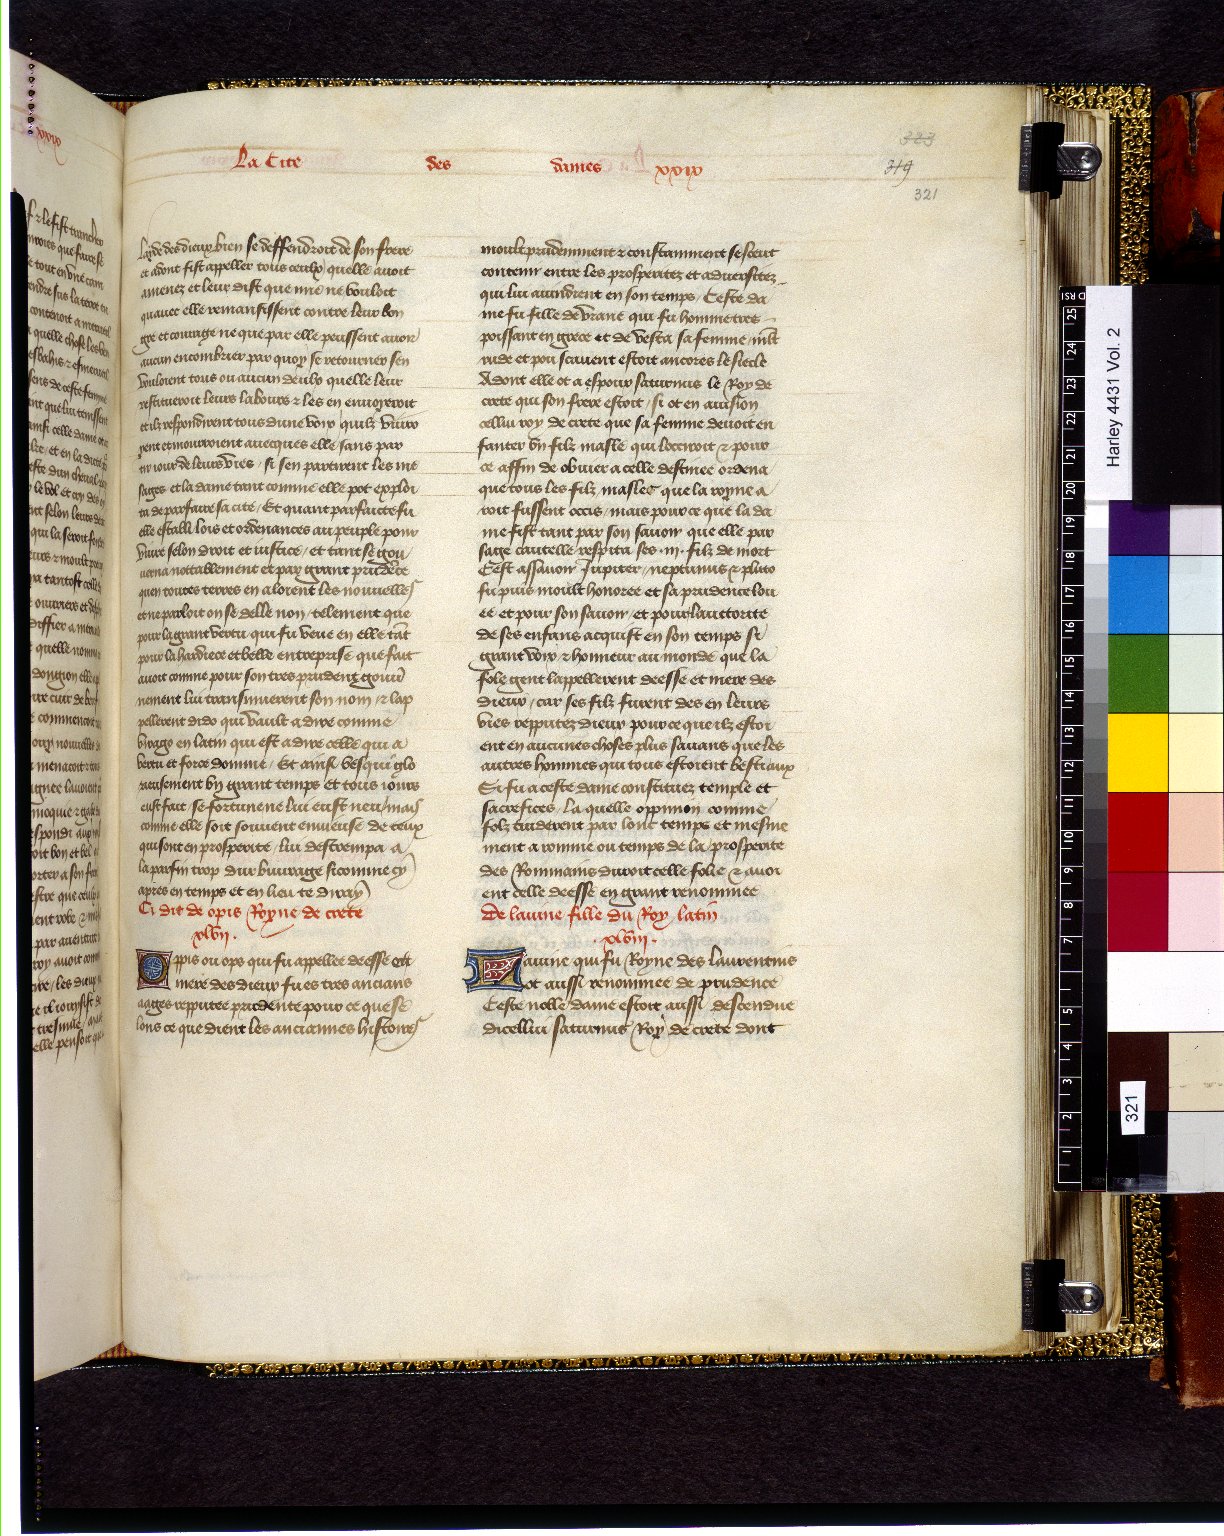 La Cite des dames xxix
323
319
321
laide des dieux bien se deffendroit de son frere
et adont fist appeller tous ceulx quelle auoit
amenez et leur dist que mie ne vouloit
quauec elle remansissent contre leur bon
gre et courage ne que par elle peussent auoir
aucun encombrier par quoy se retourner sen
vouloient tous ou aucun deulx quelle leur
restitueroit leurs labours & les en enuoyeroit
et ilz respondirent tous dune voix quilz viuro
yent et mourroient auecques elle sans par
tir iour de leurs vies / si sen partirent les me
sages et la dame tant comme elle pot exploi
ta de parfaire sa cite / Et quant parfaicte fu
elle establi lois et ordenances au peuple pour
viure selon droit et iustice / et tant se gou
uerna nottablement et par grant prudece
quen toutes terres en aloient les nouuelles
et ne parloit on se delle non / telement que
pour la grant vertu qui fu veue en elle tat
pour la hardiece et belle entreprise que fait
auoit comme pour son tres prudent gouu
nement lui transmuerent son nom / & lap
pellerent dido qui vault a dire comme
virago en latin qui est a dire celle qui a
vertu et force domme / Et ainsi vesqui glo
rieusement vn grant temps et tous iours
eust fait / se fortune ne lui eust neu / mais
comme elle soit souuent enuieuse de ceux
qui sont en prosperite / lui destrempa a
la parfin trop dur buurage si comme cy
apres en temps et en lieu te diray
Ci dit de opis Royne de crete
xlvij.
Oppis ou ops qui fu appellee deesse et
mere des dieux fu es tres ancians
aages repputee prudente pour ce que se
lons ce que dient les anciannes histoires
moult prudemment & constamment se sceut
contenir entre les prosperitez et aduersitez
qui lui auindrent en son temps / Ceste da
me fu fille de vrane qui fu homme tres
poissant en grece et de vesta sa femme mlt
rude et pou scauent estoit ancores le siecle
Adont elle ot a espoux saturnus le Roy de
crete qui son frere estoit / si ot en auision
cellui roy de crete que sa femme deuoit en
fanter vn filz masle qui locciroit & pour
ce affin de obuier a celle destinee ordena
que tous les filz masles que la royne a
roit fussent occis / mais pour ce que la da
me fist tant par son sauoir que elle par
sage cautelle respita ses .iij. filz de mort
Cest assauoir Jupiter / neptunus & pluto
fu puis moult honoree et sa prudence lou
ee et pour son sauoir / et pour lauctorite
de ses enfans acquist en son temps si
grant voix & honneur au monde que la
fole gent lappellerent deesse et mere des
dieux / car ses filz furent des en leurs
vies repputez dieux pour ce que ilz estoi
ent en aucunes choses plus sauans que les
autres hommes qui tous estoient bestiaux
Si fu a ceste dame constituez temple et
sacrefices / la quelle oppinion comme
folz tindrent par lonc temps et mesme
ment a romme ou temps de la prosperite
des Rommains duroit celle folie & auoi
ent celle deesse en grant renommee
De lauine fille du Roy latin
.xlviij.
Lauine qui fu Royne des laurentins
ot aussi renommee de prudence
Ceste noble dame estoit aussi descendue
dicellui saturnus Roy de crete dont
Harley 4431 Vol. 2
321